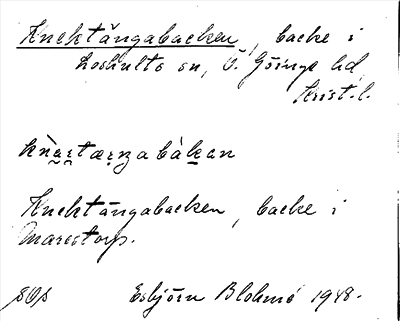 Knektängabacken, backe i
Loshults sn, Ö. Göinge hd,
Krist. l.
Knektängabacken, backe i
Marestorp.
Esbjörn Blohmé 1948.